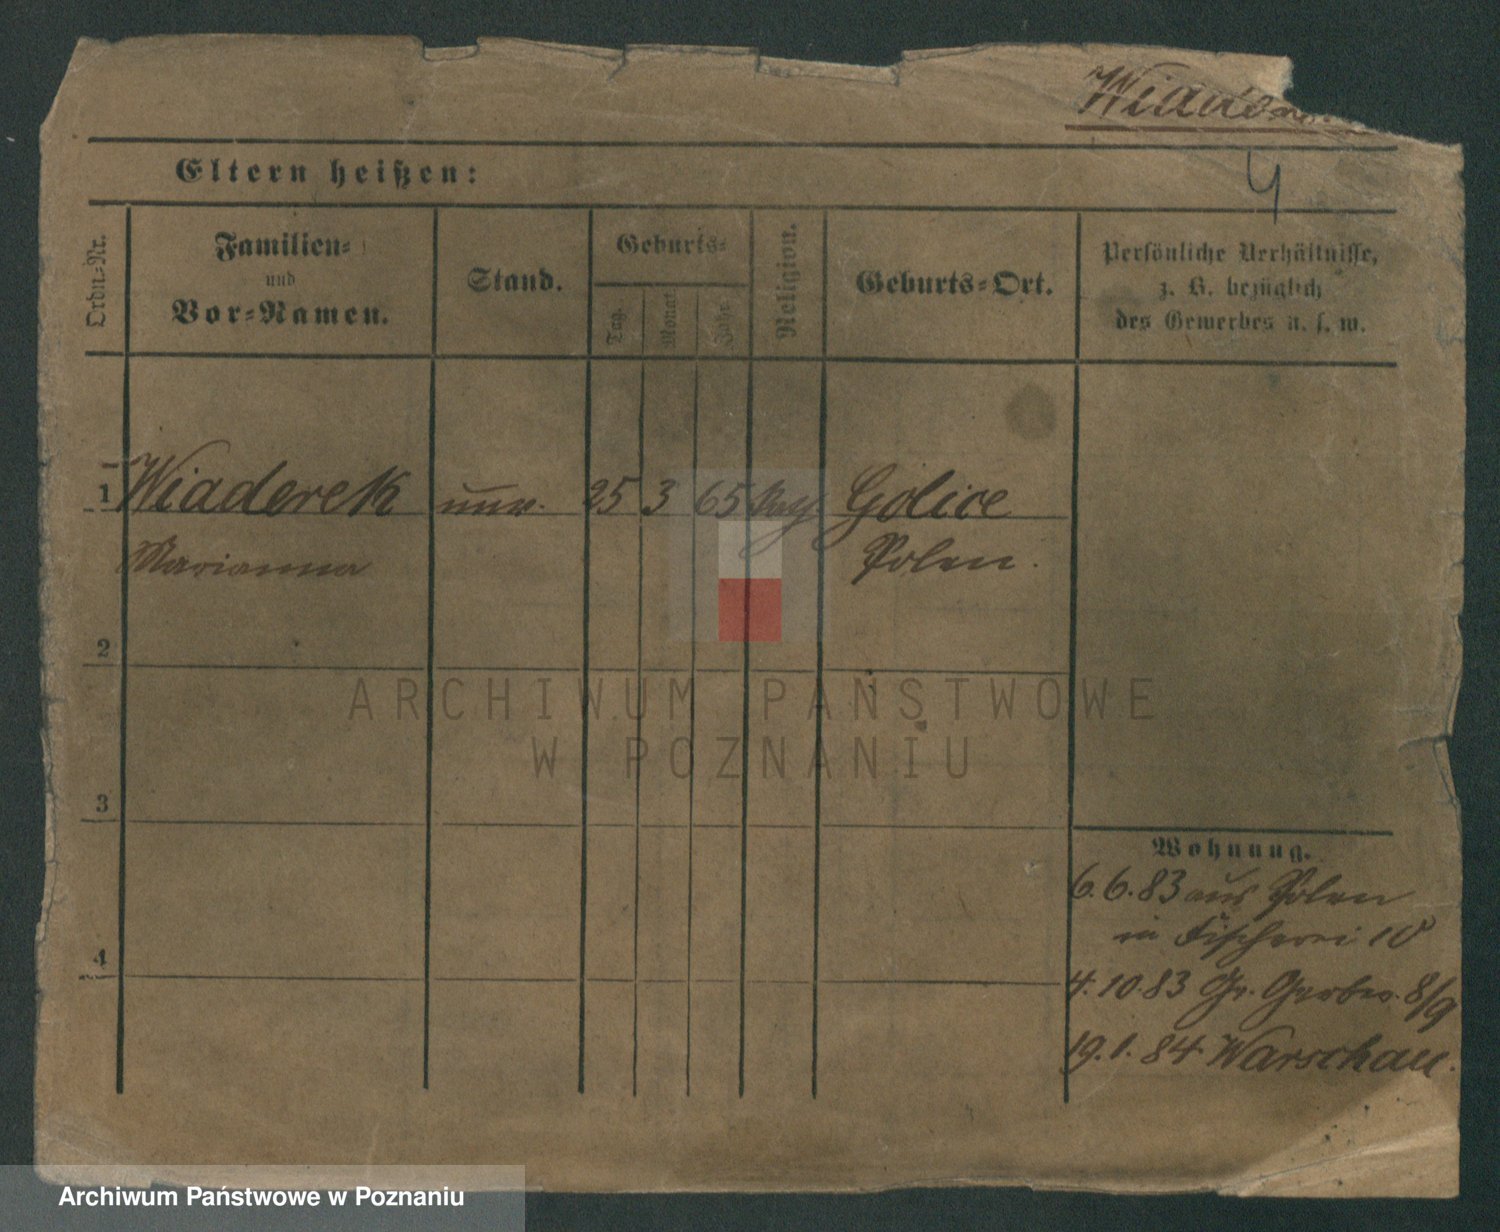 Wiade
4
Eltern heißen:
Ordn=Nr.
Familien=
und
Vor=Namen.
Stand.
Geburts=
Tag.
Monat
Jahr
Religion.
Geburts=Ort.
Persönliche Verhältnisse,
z. B. bezüglich
des Gewerbes u. s. w.
1 Wiaderek unv. 25 3 65 Golice
Marianna Polen.
2
3
4
Wohnung.
6.6.83 aus Polen
in Fischerei 10
4.10.83 Gr. Gerber. 8/9
19.1.84 Warschau.
ARCHIWUM PAŃSTWOWE
W POZNANIU
Archiwum Państwowe w Poznaniu